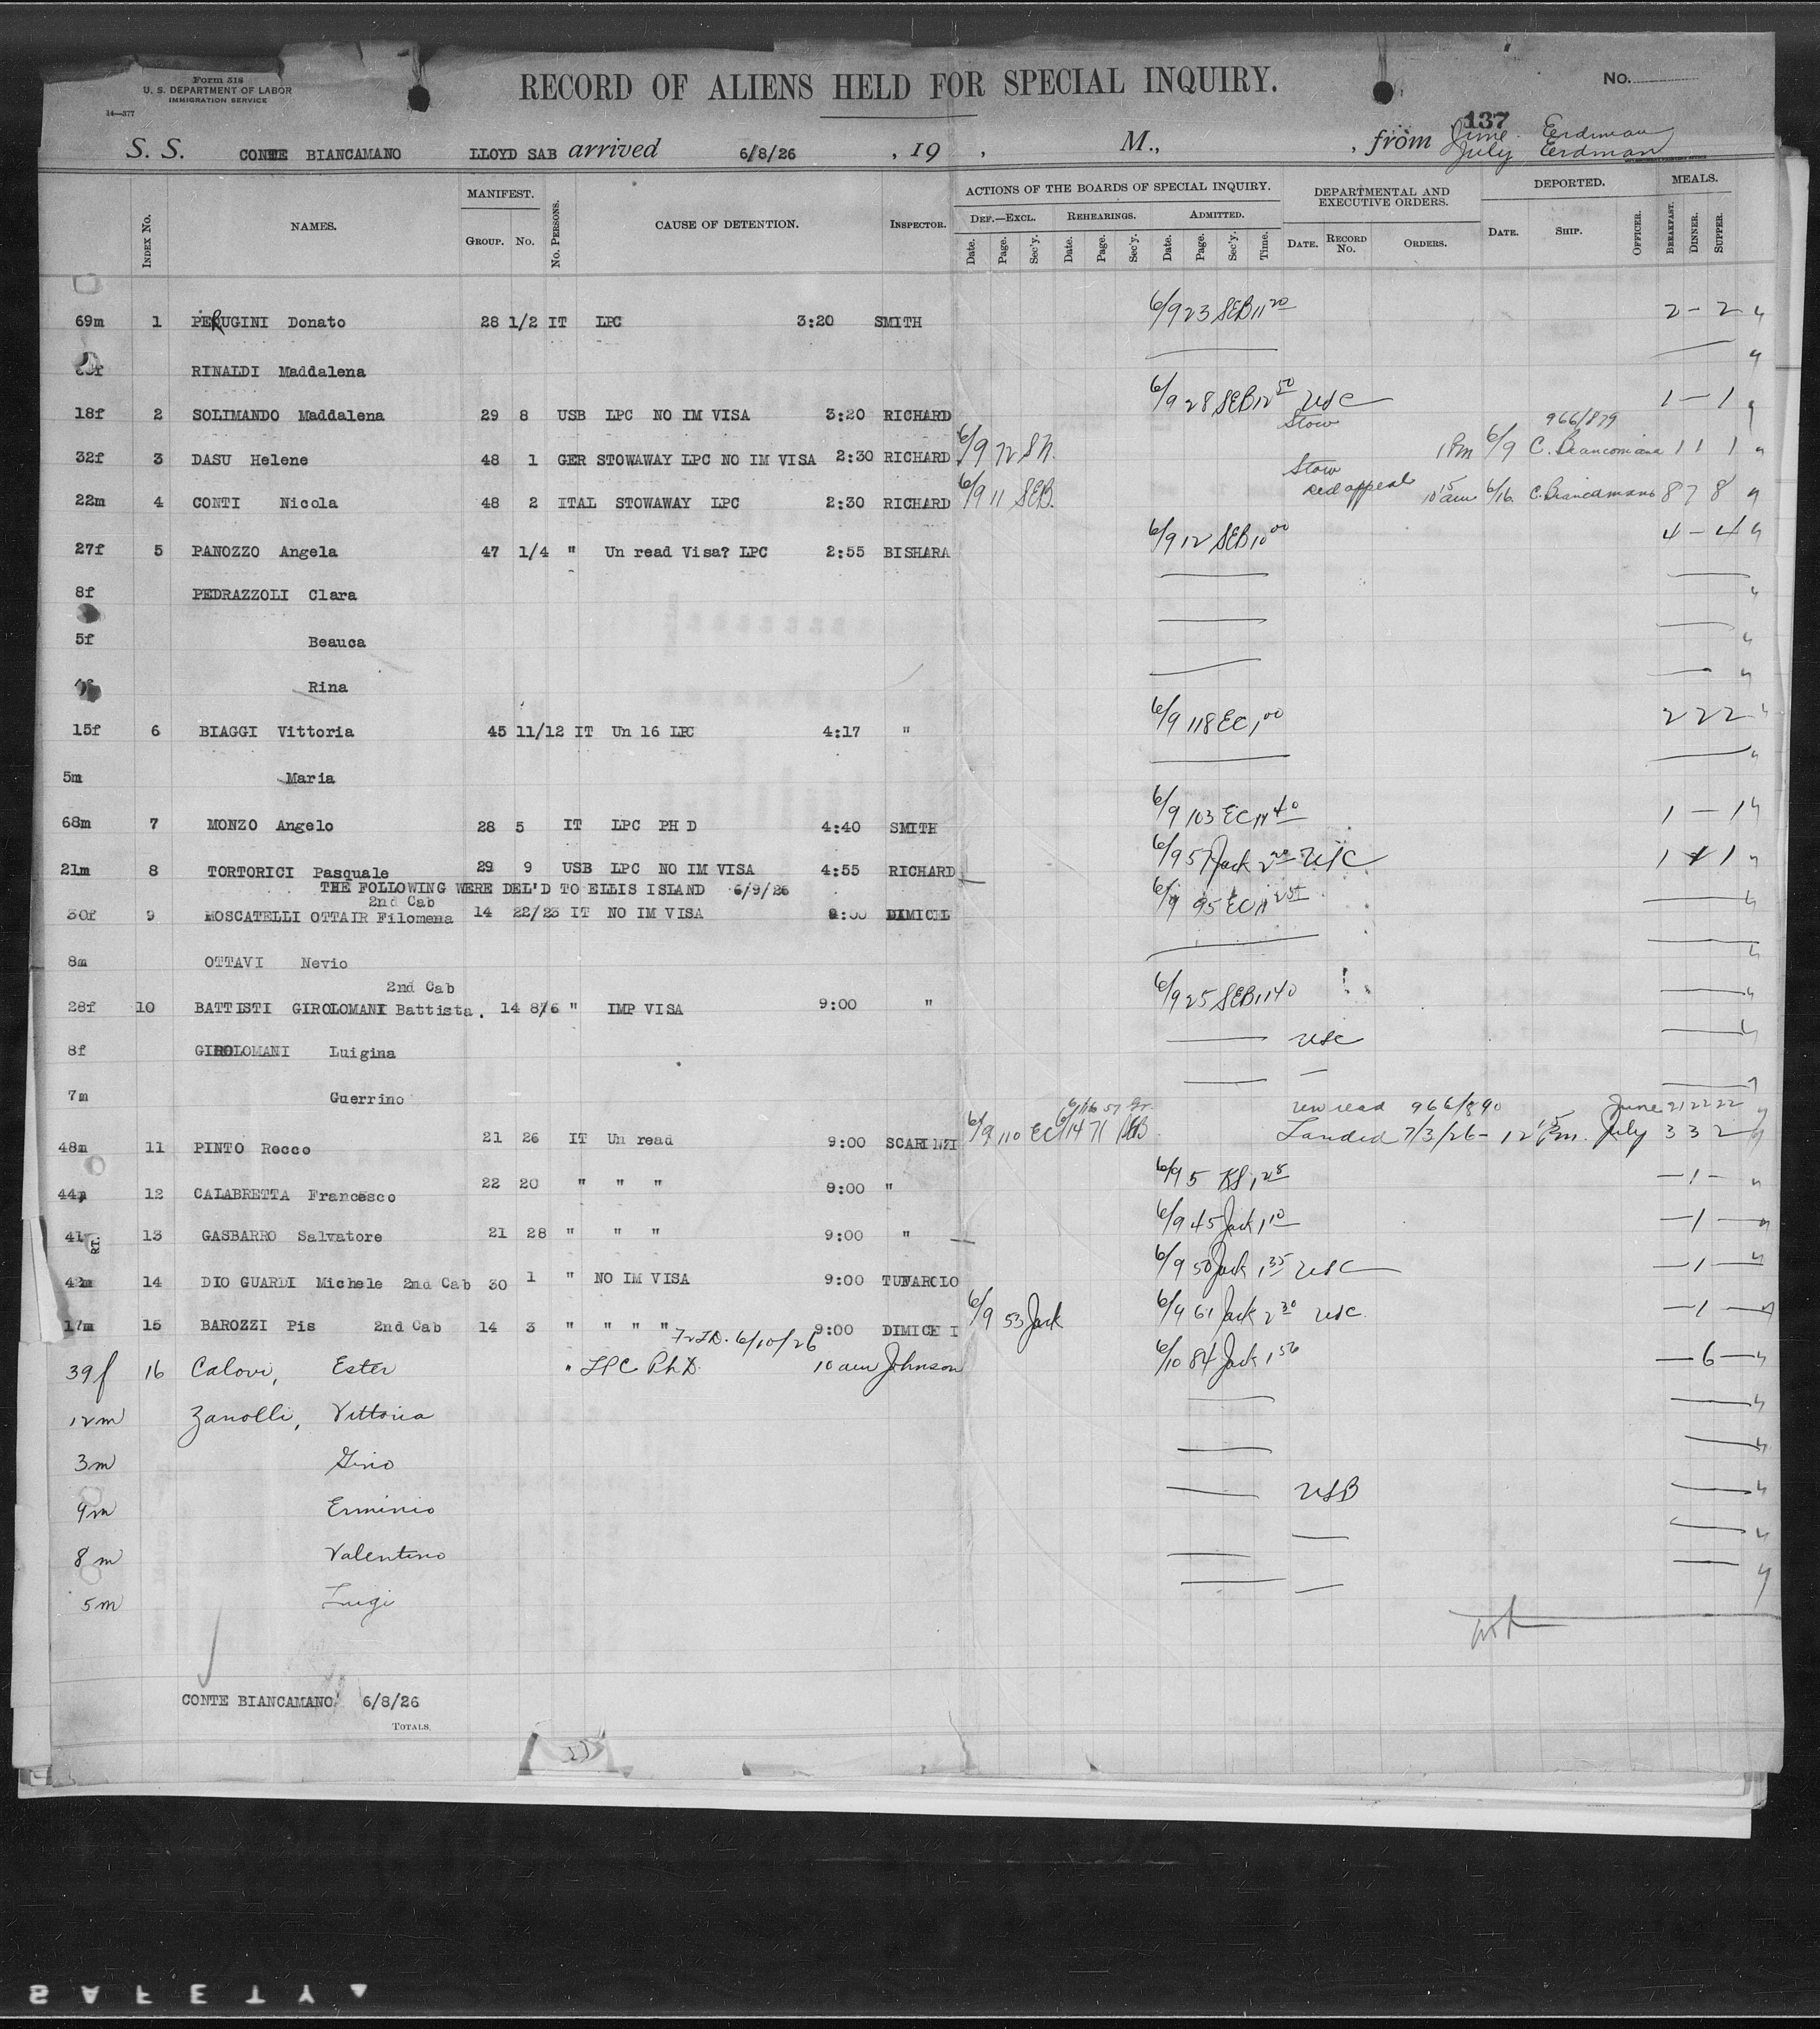 Form 518
U. S. DEPARTMENT OF LABOR
IMMIGRATION SERVICE
14—377
RECORD OF ALIENS HELD FOR SPECIAL INQUIRY.
No.
137
S. S. CONTE BIANCAMANO LLOYD SAB arrived 6/8/26 , 19 , M., , from June Erdman
July Erdman
INDEX No. NAMES. MANIFEST. GROUP. No. No. PERSONS. CAUSE OF DETENTION. INSPECTOR. ACTIONS OF THE BOARDS OF SPECIAL INQUIRY. DEF.—EXCL. Date. Page. Sec'y. REHEARINGS. Date. Page. Sec'y. ADMITTED. Date. Page. Sec'y. Time. DEPARTMENTAL AND EXECUTIVE ORDERS. DATE. RECORD No. ORDERS. DEPORTED. DATE. SHIP. OFFICER. MEALS. BREAKFAST. DINNER. SUPPER.
69m 1 PERUGINI Donato 28 1/2 IT LPC 3:20 SMITH 6/9 23 SEB 11 20 2 — 2
RINALDI Maddalena
18f 2 SOLIMANDO Maddalena 29 8 USB LPC NO IM VISA 3:20 RICHARD 6/9 28 SEB 12 50 USC 1 — 1
966/879
32f 3 DASU Helene 48 1 GER STOWAWAY LPC NO IM VISA 2:30 RICHARD 6/9 72 SN. Stow 1 Pm 6/9 C. Biancomano 1 1 1
22m 4 CONTI Nicola 48 2 ITAL STOWAWAY LPC 2:30 RICHARD 6/9 11 SEB. Stow ded appeal 10 15 am 6/16 C. Biancamano 8 7 8
27f 5 PANOZZO Angela 47 1/4 " Un read Visa? LPC 2:55 BISHARA 6/9 12 SEB 10 00 4 — 4
8f PEDRAZZOLI Clara
5f Beauca
Rina
15f 6 BIAGGI Vittoria 45 11/12 IT Un 16 LPC 4:17 " 6/9 118 EC 1 00 2 2 2
5m Maria
68m 7 MONZO Angelo 28 5 IT LPC PH D 4:40 SMITH 6/9 103 EC 11 40 1 — 1
21m 8 TORTORICI Pasquale 29 9 USB LPC NO IM VISA 4:55 RICHARD 6/9 57 Jack 2 20 USC 1 1 1
THE FOLLOWING WERE DEL'D TO ELLIS ISLAND 6/9/26
2nd Cab
30f 9 MOSCATELLI OTTAIR Filomena 14 22/23 IT NO IM VISA 9:00 DIMICEL 6/9 95 EC 11
8m OTTAVI Nevio
2nd Cab
28f 10 BATTISTI GIROLOMANI Battista. 14 8/6 " IMP VISA 9:00 " 6/9 25 SEB 11 40
8f GIROLOMANI Luigina USC
7m Guerrino
un read 966/890 June 21 22 22
48m 11 PINTO Rocco 21 26 IT Un read 9:00 SCARINZI 6/9 110 EC 6/14 71 Landed 7/3/26 - 12 15 Pm. July 3 3 2
44m 12 CALABRETTA Francesco 22 20 " " " 9:00 " 6/9 5 KS 1 28 — 1 —
41 13 GASBARRO Salvatore 21 28 " " " 9:00 " 6/9 45 Jack 1 10 — 1 —
42m 14 DIO GUARDI Michele 2nd Cab 30 1 " NO IM VISA 9:00 TUFAROLO 6/9 50 Jack 1 35 USC — 1 —
17m 15 BAROZZI Pis 2nd Cab 14 3 " " " " 9:00 DIMICE I 6/9 53 Jack 6/9 61 Jack 2 30 USC. — 1 —
6/10/26
39f 16 Calovi, Ester " LPC Ph D. 10 am Johnson 6/10 84 Jack 1 56 — 6 —
12m Zanolli, Vittorio
3m Gino
9m Erminio USB
8m Valentino
5m Luigi
CONTE BIANCAMANO 6/8/26
TOTALS.
SAFETY